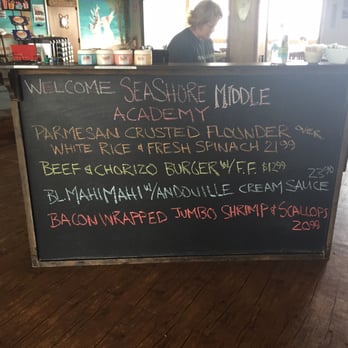 WELCOME SEASHORE MIDDLE
ACADEMY
PARMESAN CRUSTED FLOUNDER OVER
WHITE RICE & FRESH SPINACH 21.99
BEEF & CHORIZO BURGER W/ F.F. $12.99
23.90
BL. MAHI MAHI W/ ANDOUILLE CREAM SAUCE
BACON WRAPPED JUMBO SHRIMP & SCALLOPS
20.99